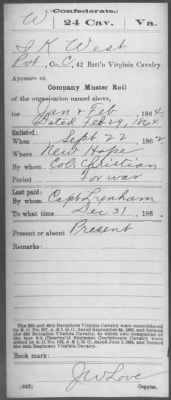 Confederate.
W 24 Cav. Va.
J K West
Pvt, Co. C, 42 Batt'n Virginia Cavalry.
Appears on
Company Muster Roll
of the organization named above,
for Jan & Feb 1864.
Dated Feb 29, 1864
Enlisted:
When Sept 22 1862
Where New Hope
By whom Col. Christian
Period For war
Last paid:
By whom Capt Lynham
To what time Dec 31, 186 .
Present or absent Present
Remarks:
Book mark:
J W Love
(642) Copyist.